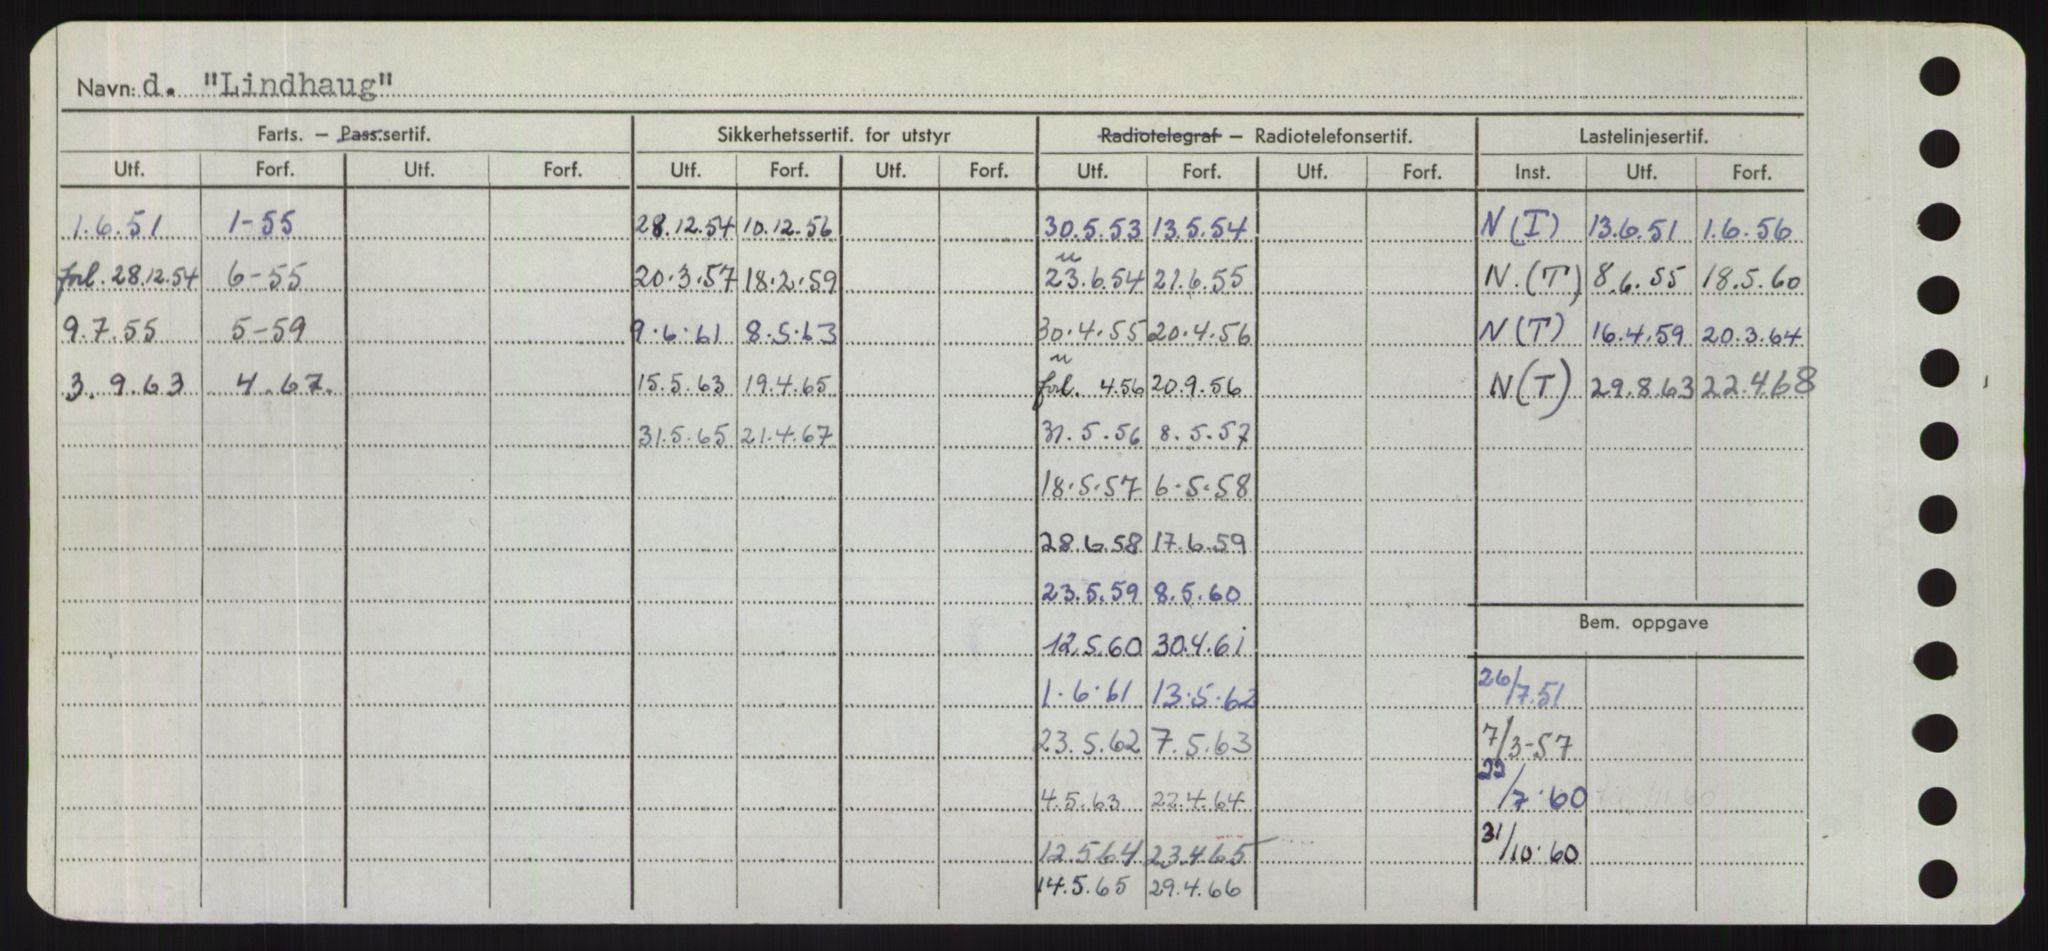 Navn: d. "Lindhaug"
Farts. – Pass.sertif. Sikkerhetssertif. for utstyr Radiotelegraf – Radiotelefonsertif. Lastelinjesertif.
Utf. Forf. Utf. Forf. Utf. Forf. Utf. Forf. Utf. Forf. Utf. Forf. Inst. Utf. Forf.
1.6.51 1-55 28.12.54 10.12.56 30.5.53 13.5.54 N(I) 13.6.51 1.6.56
forl. 28.12.54 6-55 20.3.57 18.2.59 23.6.54 21.6.55 N.(T) 8.6.55 18.5.60
9.7.55 5-59 9.6.61 8.5.63 30.4.55 20.4.56 N(T) 16.4.59 20.3.64
3.9.63 4.67. 15.5.63 19.4.65 forl. 4.56 20.9.56 N(T) 29.8.63 22.4.68
31.5.65 21.4.67 31.5.56 8.5.57
18.5.57 6.5.58
28.6.58 17.6.59
23.5.59 8.5.60
Bem. oppgave
12.5.60 30.4.61
1.6.61 13.5.62 26/7.51
23.5.62 7.5.63 7/3-57
4.5.63 22.4.64 22/7.60
12.5.64 23.4.65 31/10.60
14.5.65 29.4.66